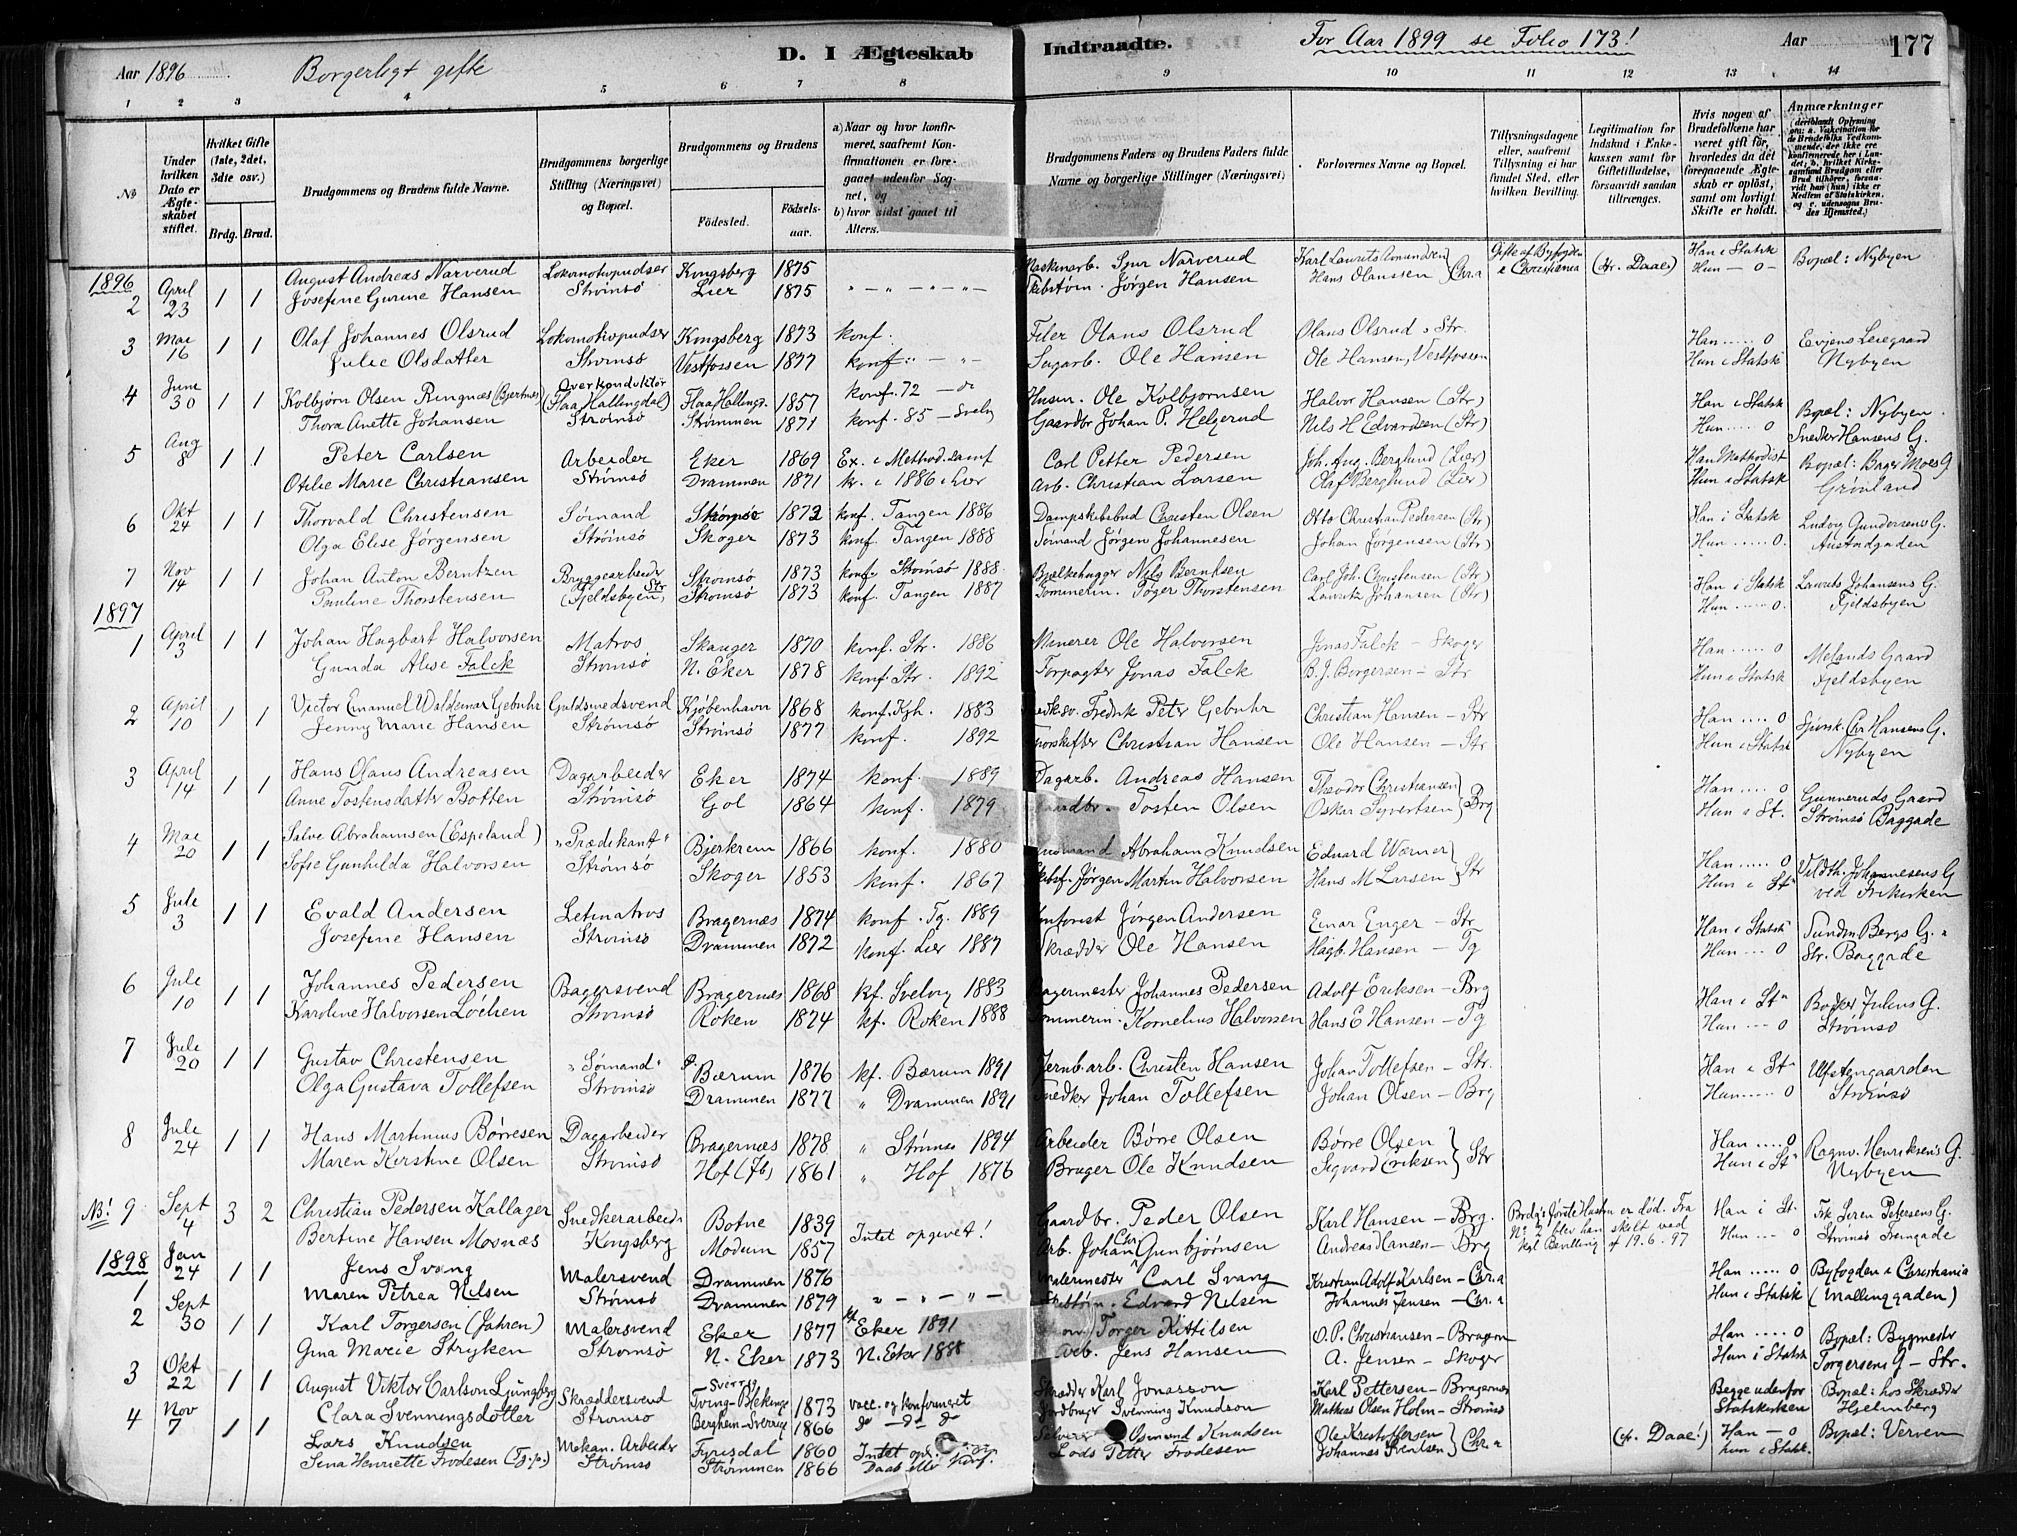 Aar 1896 Borgerligt gifte D. I Ægteskab Indtraadte. For Aar 1899 se Folio 173! Aar 177
1 2 3 4 5 6 7 8 9 10 11 12 13 14
No
Under hvilken Dato er Ægteskabet stiftet.
Hvilket Gifte (1ste, 2det, 3die osv.)
Brdg. Brud.
Brudgommens og Brudens fulde Navne.
Brudgommens borgerlige Stilling (Næringsvei) og Bopæl.
Brudgommens og Brudens
Födested. Födselsaar.
a) Naar og hvor konfirmeret, saafremt Konfirmationen er foregaaet udenfor Sognet, og
b) hvor sidst gaaet til Alters.
Brudgommens Faders og Brudens Faders fulde Navne og borgerlige Stillinger (Næringsvei)
Forlovernes Navne og Bopæl.
Tillysningsdagene eller, saafremt Tillysning ei har fundet Sted, efter hvilken Bevilling.
Legitimation for Indskud i Enkekassen samt for Giftetilladelse, forsaavidt saadan tiltrænges.
Hvis nogen af Brudefolkene har været gift før, hvorledes da det foregaaende Ægteskab er oplöst, samt om lovligt Skifte er holdt.
Anmærkninger
1896
2 April 23 1 1 August Andreas Narverud Lokomotivpudser Kongsberg 1875 Maskinarb. Narverud Karl Laurits Amundsen Gifte af Byfogden (hr. Daae) Han i Statsk Bopæl: Nybyen
Josefine Gurine Hansen Strømsø Lier 1875 Jørgen Hansen Hans Olanssen Chr.a i Christiania Hun — 0 —
3 Mai 16 1 1 Olaf Johannes Olsrud Lokomotivpudser Kongsberg 1873 konf. Filer Olaus Olsrud Olaus Olsrud, Str. Han 0 Evjens Leiegaard
Julie Olsdatter Strømsø Vestfossen 1877 konf. Sagarb. Ole Hansen Ole Hansen, Vestfossen Hun i Statsk Nybyen
4 Juni 30 1 1 Kolbjørn Olsen Ringnæs (Bjertnæs) Overkonduktør (Flaa Hallingdal) Flaa Hallingd. 1857 konf. 72 Husm. Ole Kolbjørnsen Halvor Hansen (Str) Han i Statsk Bopæl: Nybyen
Thora Anette Johansen Strømsø Strømmen 1871 konf. 85 — Svelv Gaardbr Johan P. Helgerud Nils H Edvardsen (Str) Hun 0 Snedker Hansens G.
5 Aug 8 1 1 Peter Carlsen Arbeider Eker 1869 Ex. i Method.samf Carl Petter Pedersen Joh. Aug. Berglund (Lier) Han Methodist Bopæl: Bager Moes G
Otilie Marie Christiansen Strømsø Drammen 1871 kr. i 1886 i Lier Arb. Christian Larsen Olaf Berglund (Lier) Hun i Statsk Grønland
6 Okt 24 1 1 Thorvald Christensen Sømand Strømsø 1872 konf. Tangen 1886 Dampskibsbud Christen Olsen Otto Christian Pedersen (Str) Han i Statsk Ludvig Gundersens G.
Olga Elise Jørgensen Strømsø Skoger 1873 konf. Tangen 1888 Sømand Jørgen Johannesen Johan Jørgensen (Str) Hun 0
7 Nov 14 1 1 Johan Anton Berntzen Bryggearbeider Strømsø 1873 konf. Strømsø 1888 Bjælkehugger Nils Berntsen Carl Joh. Christensen (Str) Han i Statsk Laurits Johansens G.
Pauline Thorstensen (Fjeldsbyen, Str) Strømsø 1873 konf. Tangen 1887 Tømmerm. Thorstensen Lauritz Johansen (Str) Hun 0 Fjeldsbyen
1897
1 April 3 1 1 Johan Hagbart Halvorsen Matros Skauger 1870 konf. Str. 1886 Minerer Ole Halvorsen Jonas Falck — Skoger Han 0 Melands Gaard
Gunda Alise Falck Strømsø N. Eker 1878 konf. Str. 1892 Forpagter Jonas Falck B. J. Borgersen — Str Hun i Statsk Fjeldsbyen
2 April 10 1 1 Victor Emanuel Waldemar Gebuhr Guldsmedsvend Kjøbenhavn 1868 konf. Kjh. 1883 Fredrik Peter Gebuhr Christian Hansen — Str Han 0 Chr Hansens G.
Jenny Marie Hansen Strømsø Strømsø 1877 konf. 1892 Sporskifter Christian Hansen Ole Hansen — Str Hun i Statsk Nybyen
3 April 14 1 1 Hans Olaus Andreasen Dagarbeider Eker 1874 konf. 1889 Dagarb. Andreas Hansen Theodor Christiansen Han 0 Gunneruds Gaard
Anne Tostensdatter Botten Strømsø Gol 1864 konf. 1879 Gaardbr. Tosten Olsen Oskar Syvertsen Brg Hun i St. Strømsø Baggade
4 Mai 20 1 1 Salve Abrahamsen (Espeland) "Prædikant" Bjerkrem 1866 konf. 1880 Abraham Knudsen Edvard Wærner Han 0 Johannesens G
Sofie Gunhilda Halvorsen Strømsø Skoger 1853 konf. 1867 Skibsf. Jørgen Martin Halvorsen Hans M Larsen Str Hun i St. ved Frikirken
5 Juli 3 1 1 Evald Andersen Letmatros Bragernæs 1874 konf. Tg. 1889 Jørgen Andersen Einar Enger — Str Han i Statsk Bergs G.
Josefine Hansen Strømsø Drammen 1872 konf. Lier 1887 Skrædder Ole Hansen Hagb. Hansen — Tg Hun 0 Str. Baggade
6 Juli 10 1 1 Johannes Pedersen Bagersvend Bragernæs 1868 kf. Svelvig 1883 Bagermester Johannes Pedersen Adolf Eriksen — Brg Han i St. Julins G.
Karoline Halvorsen Løchen Strømsø Røken 1874 kf. Røken 1888 Tømmerm. Kornelius Halvorsen Hans E Hansen — Tg Hun 0 Strømsø
7 Juli 20 1 1 Gustav Christensen "Sømand" Bærum 1876 kf. Bærum 1891 Jernb.arb. Christen Hansen Johan Tollefsen — Str. Han i St. Ulfstengaarden
Olga Gustava Tollefsen Strømsø Drammen 1877 " Drammen 1891 Snedker Johan Tollefsen Johan Olsen — Brg Hun 0 Strømsø
8 Juli 24 1 1 Hans Martinius Børresen Dagarbeider Bragernæs 1878 " Strømsø 1894 Arbeider Børre Olsen Børre Olsen Han 0 Ragnv. Henriksens G.
Maren Kirstine Olsen Strømsø Hof (Jb) 1861 " Hof 1876 Bruger Ole Knudsen Sigvard Eriksen Str Hun i St. Nybyen
NB! 9 Sept 4 3 2 Christian Pedersen Kallager Snedkerarbeider Botne 1839 Intet opgivet! Gaardbr. Peder Olsen Karl Hansen — Brg. Brdg's første Hustru er død. Fra Han i St. Frk Siren Petersens G.
Bertine Hansen Mosnæs Kongsberg Modum 1857 Arb. Johan Chr Gunbjønsen Andreas Hansen — Brg No 2 blev han skilt ved kgl Bevilling af 19.6.97 Hun 0 Strømsø
1898
1 Jan 24 1 1 Jens Svang Malersvend Drammen 1876 Malermester Carl Svang Kristian Adolf Karlsen — Chr.a Han 0 Byfogden i Christiania
Maren Petrea Nilsen Strømsø Drammen 1879 Skibstøm. Edvard Nilsen Johannes Jensen — Chr.a Hun i Statsk (Mallinggaden)
2 Sept 30 1 1 Karl Torgersen (Jahren) Malersvend Eker 1877 kf Eker 1891 Torger Kittilsen O. P. Christiansen — Bragern Han 0 Bopæl: Bygmester
Gina Marie Stryken Strømsø N. Eker 1873 N. Eker 1888 Arb. Jens Hansen A. Jensen — Skoger Hun i Statsk Torgersens G — Str.
3 Okt 22 1 1 August Viktor Carlson Ljungberg Skræddersvend Tving - Blekinge Sverrig 1873 vacc. og konfirmeret Skrædder Karl Jonasson Karl Pettersen — Bragernæs Begge udenfor Bopæl: hos Skrædder
Clara Svenningsdotter Strømsø Berghem - Sverrig 1866 do — do — do Jordbruger Svenning Knudson Mathias Olsen Holm — Strømsø Statskirken Hjelmberg
4 Nov 7 1 1 Lars Knudsen Mekan. Arbeider Fyrisdal 1860 Intet opg. Selveier Osmund Knudsen Ole Kristoffersen (hr. Daae!) Han — 0 Bopæl: Verven
Sina Henriette Frodesen Strømsø Strømmen 1866 Daab eller Konf. Lods Petter Frodesen Johannes Chr.a hun i Statsk.